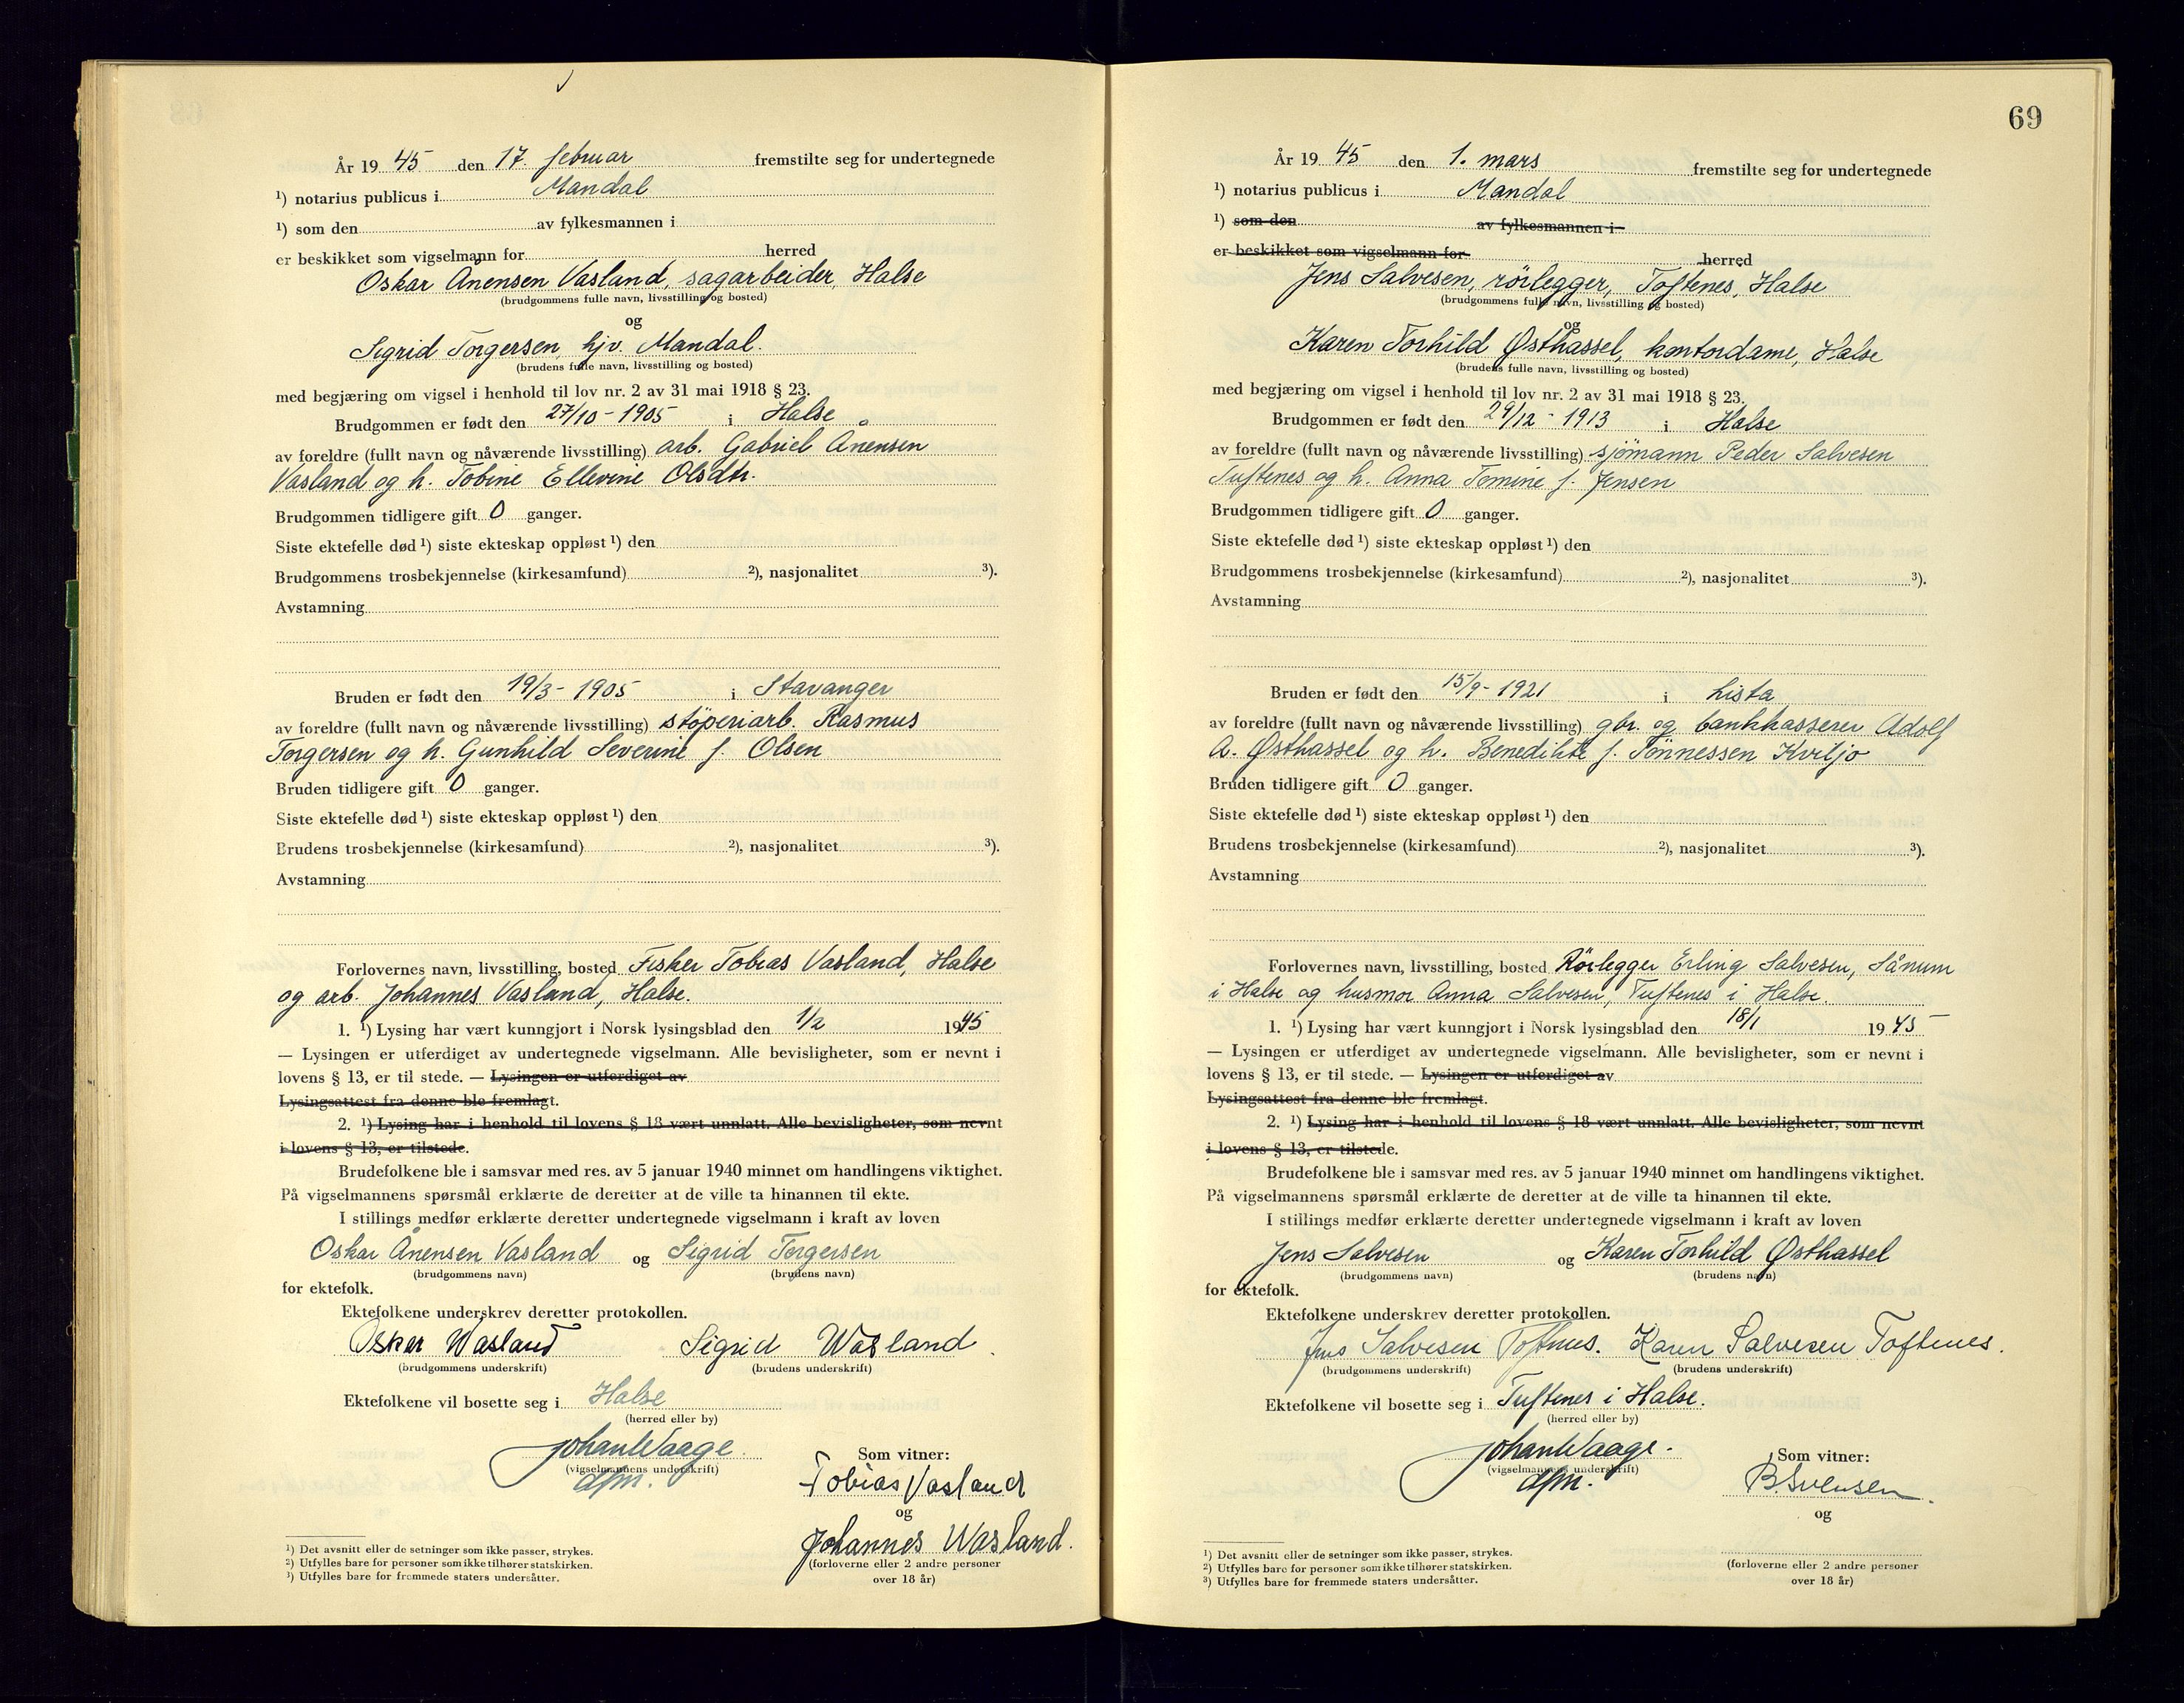 År 19 45 den 17. februar fremstilte seg for undertegnede
¹) notarius publicus i Mandal
¹) som den av fylkesmannen i
er beskikket som vigselmann for herred
Oskar Ånensen Vasland, sagarbeider, Halse
(brudgommens fulle navn, livsstilling og bosted)
og
Sigrid Torgersen, hjv. Mandal.
(brudens fulle navn, livsstilling og bosted)
med begjæring om vigsel i henhold til lov nr. 2 av 31 mai 1918 § 23.
Brudgommen er født den 27/10 - 1905 i Halse
av foreldre (fullt navn og nåværende livsstilling) arb. Gabriel Ånensen
Vasland og h. Tobine Ellevine Olsdtr.
Brudgommen tidligere gift 0 ganger.
Siste ektefelle død ¹) siste ekteskap oppløst ¹) den
Brudgommens trosbekjennelse (kirkesamfund) ²), nasjonalitet ³).
Avstamning
Bruden er født den 19/3 - 1905 i Stavanger
av foreldre (fullt navn og nåværende livsstilling) stöperiarb. Rasmus
Torgersen og h. Gunhild Severine f. Olsen
Bruden tidligere gift 0 ganger.
Siste ektefelle død ¹) siste ekteskap oppløst ¹) den
Brudens trosbekjennelse (kirkesamfund) ²), nasjonalitet ³).
Avstamning
Forlovernes navn, livsstilling, bosted Fisker Tobias Vasland, Halse
og arb. Johannes Vasland, Halse.
1. ¹) Lysing har vært kunngjort i Norsk lysingsblad den 1/2 1945
— Lysingen er utferdiget av undertegnede vigselmann. Alle bevisligheter, som er nevnt i
lovens § 13, er til stede. — Lysingen er utferdiget av
Lysingsattest fra denne ble fremlagt.
2. ¹) Lysing har i henhold til lovens § 18 vært unnlatt. Alle bevisligheter, som nevnt
i lovens § 13, er tilstede.
Brudefolkene ble i samsvar med res. av 5 januar 1940 minnet om handlingens viktighet.
På vigselmannens spørsmål erklærte de deretter at de ville ta hinannen til ekte.
I stillings medfør erklærte deretter undertegnede vigselmann i kraft av loven
Oskar Ånensen Vasland og Sigrid Torgersen
(brudgommens navn) (brudens navn)
for ektefolk.
Ektefolkene underskrev deretter protokollen.
Oskar Wasland Sigrid Wasland.
(brudgommens underskrift) (brudens underskrift)
Ektefolkene vil bosette seg i Halse
(herred eller by)
Johan Waage.
(vigselmannens underskrift)
dfm.
Som vitner:
Tobias Vasland
og
Johannes Wasland.
(forloverne eller 2 andre personer
over 18 år)
¹) Det avsnitt eller de setninger som ikke passer, strykes.
²) Utfylles bare for personer som ikke tilhører statskirken.
³) Utfylles bare for fremmede staters undersåtter.
69
År 19 45 den 1. mars fremstilte seg for undertegnede
¹) notarius publicus i Mandal
¹) som den av fylkesmannen i
er beskikket som vigselmann for herred
Jens Salvesen, rörlegger, Toftenes, Halse
(brudgommens fulle navn, livsstilling og bosted)
og
Karen Torhild Østhassel, kontordame, Halse
(brudens fulle navn, livsstilling og bosted)
med begjæring om vigsel i henhold til lov nr. 2 av 31 mai 1918 § 23.
Brudgommen er født den 29/12 - 1913 i Halse
av foreldre (fullt navn og nåværende livsstilling) sjömann Peder Salvesen
Tuftenes og h. Anna Tomine f. Jensen
Brudgommen tidligere gift 0 ganger.
Siste ektefelle død ¹) siste ekteskap oppløst ¹) den
Brudgommens trosbekjennelse (kirkesamfund) ²), nasjonalitet ³).
Avstamning
Bruden er født den 15/9 - 1921 i Lista
av foreldre (fullt navn og nåværende livsstilling) gbr. og bankkasserer Adolf
A. Østhassel og h. Benedikte f. Tönnessen Kviljo
Bruden tidligere gift 0 ganger.
Siste ektefelle død ¹) siste ekteskap oppløst ¹) den
Brudens trosbekjennelse (kirkesamfund) ²), nasjonalitet ³).
Avstamning
Forlovernes navn, livsstilling, bosted Rörlegger Erling Salvesen, Sånum
i Halse og husmor Anna Salvesen, Tuftenes i Halse.
1. ¹) Lysing har vært kunngjort i Norsk lysingsblad den 18/1 19 45
— Lysingen er utferdiget av undertegnede vigselmann. Alle bevisligheter, som er nevnt i
lovens § 13, er til stede. — Lysingen er utferdiget av
Lysingsattest fra denne ble fremlagt.
2. ¹) Lysing har i henhold til lovens § 18 vært unnlatt. Alle bevisligheter, som nevnt
i lovens § 13, er tilstede.
Brudefolkene ble i samsvar med res. av 5 januar 1940 minnet om handlingens viktighet.
På vigselmannens spørsmål erklærte de deretter at de ville ta hinannen til ekte.
I stillings medfør erklærte deretter undertegnede vigselmann i kraft av loven
Jens Salvesen og Karen Torhild Østhassel
(brudgommens navn) (brudens navn)
for ektefolk.
Ektefolkene underskrev deretter protokollen.
Jens Salvesen Toftnes. Karen Salvesen Toftenes.
(brudgommens underskrift) (brudens underskrift)
Ektefolkene vil bosette seg i Tuftenes i Halse.
(herred eller by)
Johan Waage.
(vigselmannens underskrift)
dfm.
Som vitner:
B. Svensen.
og
(forloverne eller 2 andre personer
over 18 år)
¹) Det avsnitt eller de setninger som ikke passer, strykes.
²) Utfylles bare for personer som ikke tilhører statskirken.
³) Utfylles bare for fremmede staters undersåtter.